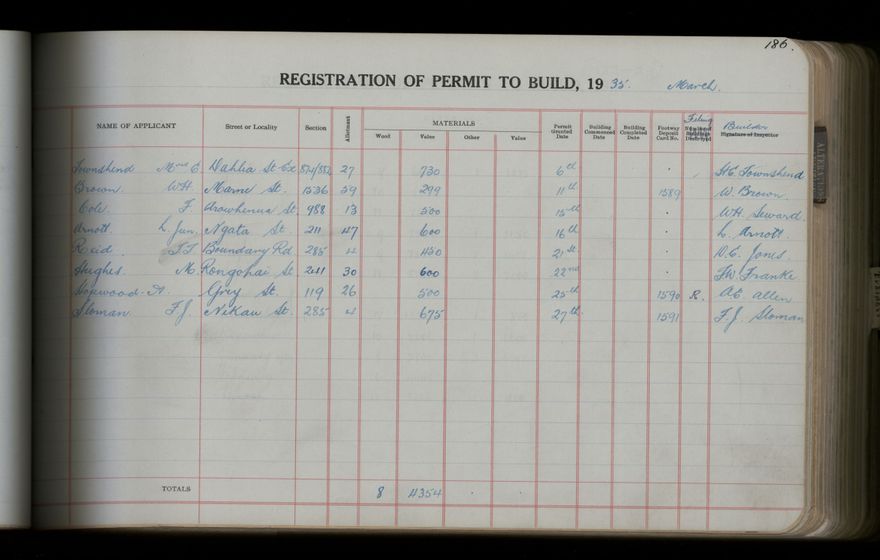 186.
REGISTRATION OF PERMIT TO BUILD, 1935. March.
NAME OF APPLICANT Street or Locality Section Allotment MATERIALS Wood Value Other Value Permit Granted Date Building Commenced Date Building Completed Date Footway Deposit Card No. Builder Signature of Inspector
Townshend Mrs E. Dahlia St 27 730 6th H.E. Townshend
Brown W.H. Marne St. 1536 59 299 11th 1589 W. Brown
Cole F. Arowhenua St. 988 13 500 15th W.H. Seward
Arnott L. Jun. Ngata St. 211 47 600 16th L. Arnott.
Reid Boundary Rd. 285 4 450 21st D.C. Jones.
Hughes M. Rongopai St. 211 30 600 22nd F.W. Franke
Hopwood A. Grey St. 119 26 500 25th 1590 R. A.E. Allen
Sloman F.J. Nikau St. 285 4 675 27th 1591 F.J. Sloman
TOTALS 8 4354